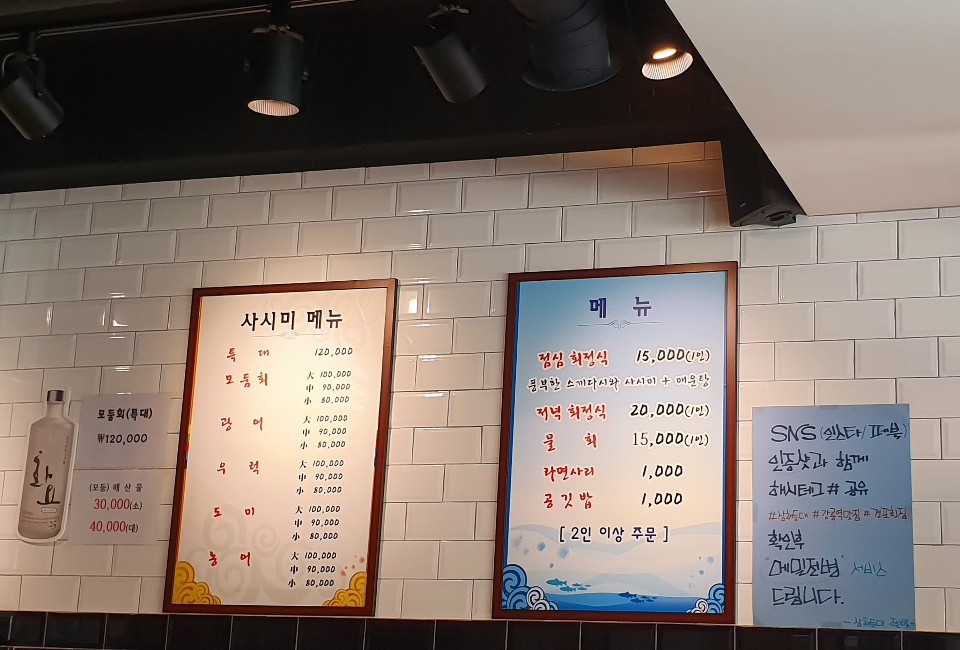 사시미 메뉴
특 대 120,000
모둠회 大 100,000
中 90,000
小 80,000
광 어 大 100,000
中 90,000
小 80,000
우 럭 大 100,000
中 90,000
小 80,000
도 미 大 100,000
中 90,000
小 80,000
농 어 大 100,000
中 90,000
小 80,000
메 뉴
점심 회정식 15,000(1인)
풍부한 스끼다시와 사시미 + 매운탕
저녁 회정식 20,000(1인)
물 회 15,000(1인)
라면사리 1,000
공깃밥 1,000
[ 2인 이상 주문 ]
화요
25
모둠회(특대)
₩120,000
(모둠) 해 산 물
30,000(소)
40,000(대)
SNS (인스타/페이북)
인증샷과 함께
해시테그 # 공유
#강릉역맛집 #경포횟집
확인후
메밀전병 서비스
드립니다.